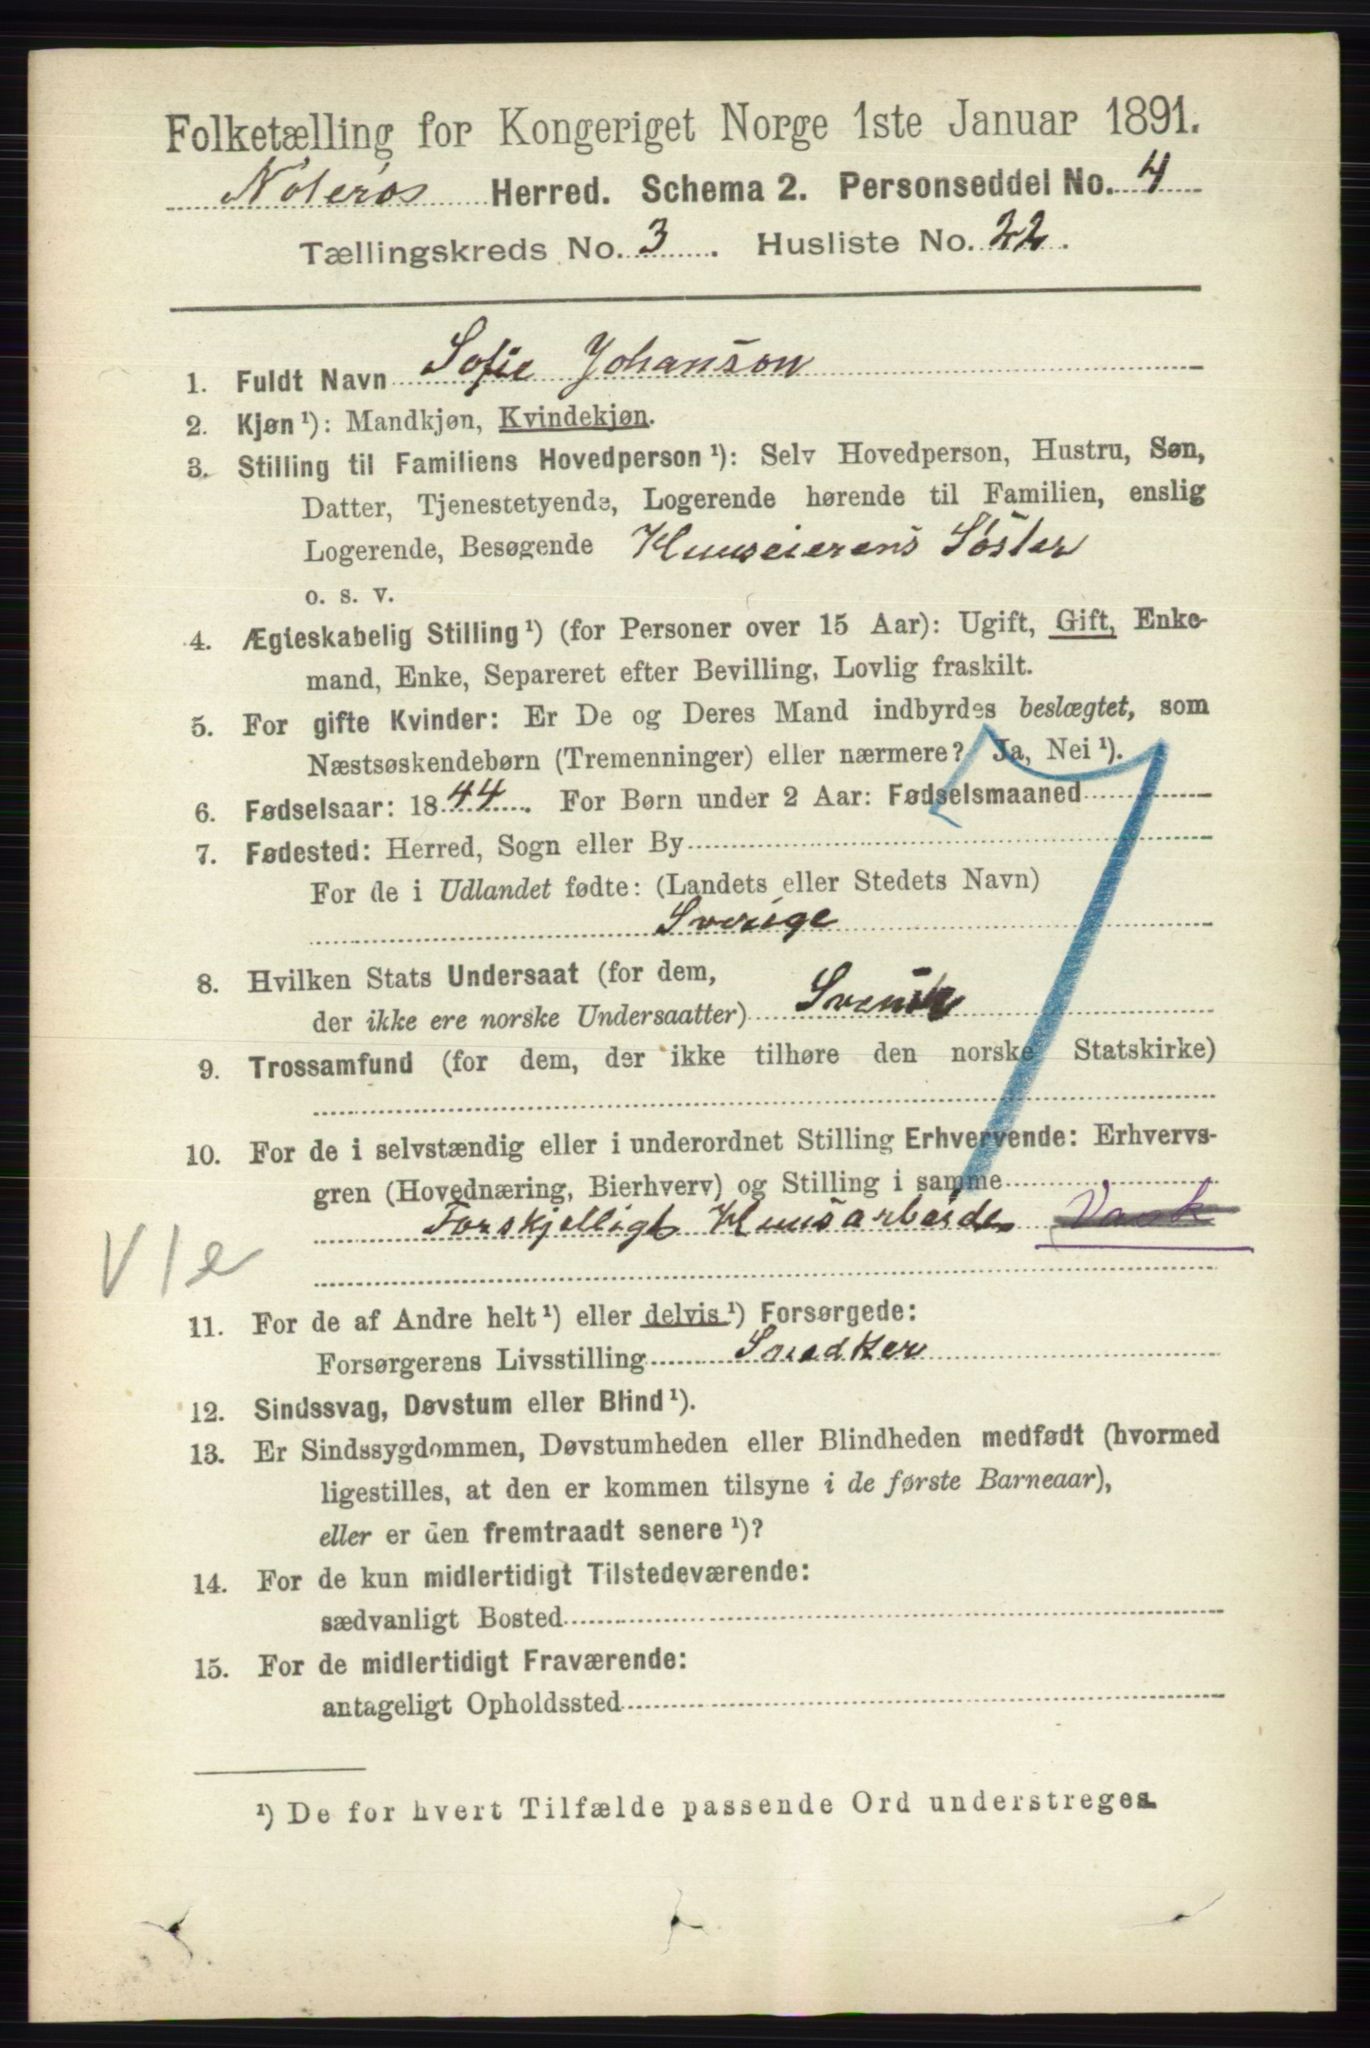 Folketælling for Kongeriget Norge 1ste Januar 1891.
Noterøs Herred. Schema 2. Personseddel No. 4
Tællingskreds No. 3. Husliste No. 22.
1. Fuldt Navn Sofie Johanson
2. Kjøn ¹): Mandkjøn, Kvindekjøn.
3. Stilling til Familiens Hovedperson ¹): Selv Hovedperson, Hustru, Søn,
Datter, Tjenestetyende, Logerende hørende til Familien, enslig
Logerende, Besøgende Huuseierens Søster
o. s. v.
4. Ægteskabelig Stilling ¹) (for Personer over 15 Aar): Ugift, Gift, Enke-
mand, Enke, Separeret efter Bevilling, Lovlig fraskilt.
5. For gifte Kvinder: Er De og Deres Mand indbyrdes beslægtet, som
Næstsøskendebørn (Tremenninger) eller nærmere? Ja, Nei ¹).
6. Fødselsaar: 1844. For Børn under 2 Aar: Fødselsmaaned
7. Fødested: Herred, Sogn eller By
For de i Udlandet fødte: (Landets eller Stedets Navn)
Sverige
8. Hvilken Stats Undersaat (for dem,
der ikke ere norske Undersaatter) Svensk
9. Trossamfund (for dem, der ikke tilhøre den norske Statskirke)
10. For de i selvstændig eller i underordnet Stilling Erhvervende: Erhvervs-
gren (Hovednæring, Bierhverv) og Stilling i samme
Forskjelligt Huusarbeide Vask
V1e
11. For de af Andre helt ¹) eller delvis ¹) Forsørgede:
Forsørgerens Livsstilling Snedker
12. Sindssvag, Døvstum eller Blind ¹).
13. Er Sindssygdommen, Døvstumheden eller Blindheden medfødt (hvormed
ligestilles, at den er kommen tilsyne i de første Barneaar),
eller er den fremtraadt senere ¹)?
14. For de kun midlertidigt Tilstedeværende:
sædvanligt Bosted
15. For de midlertidigt Fraværende:
antageligt Opholdssted
¹) De for hvert Tilfælde passende Ord understreges.